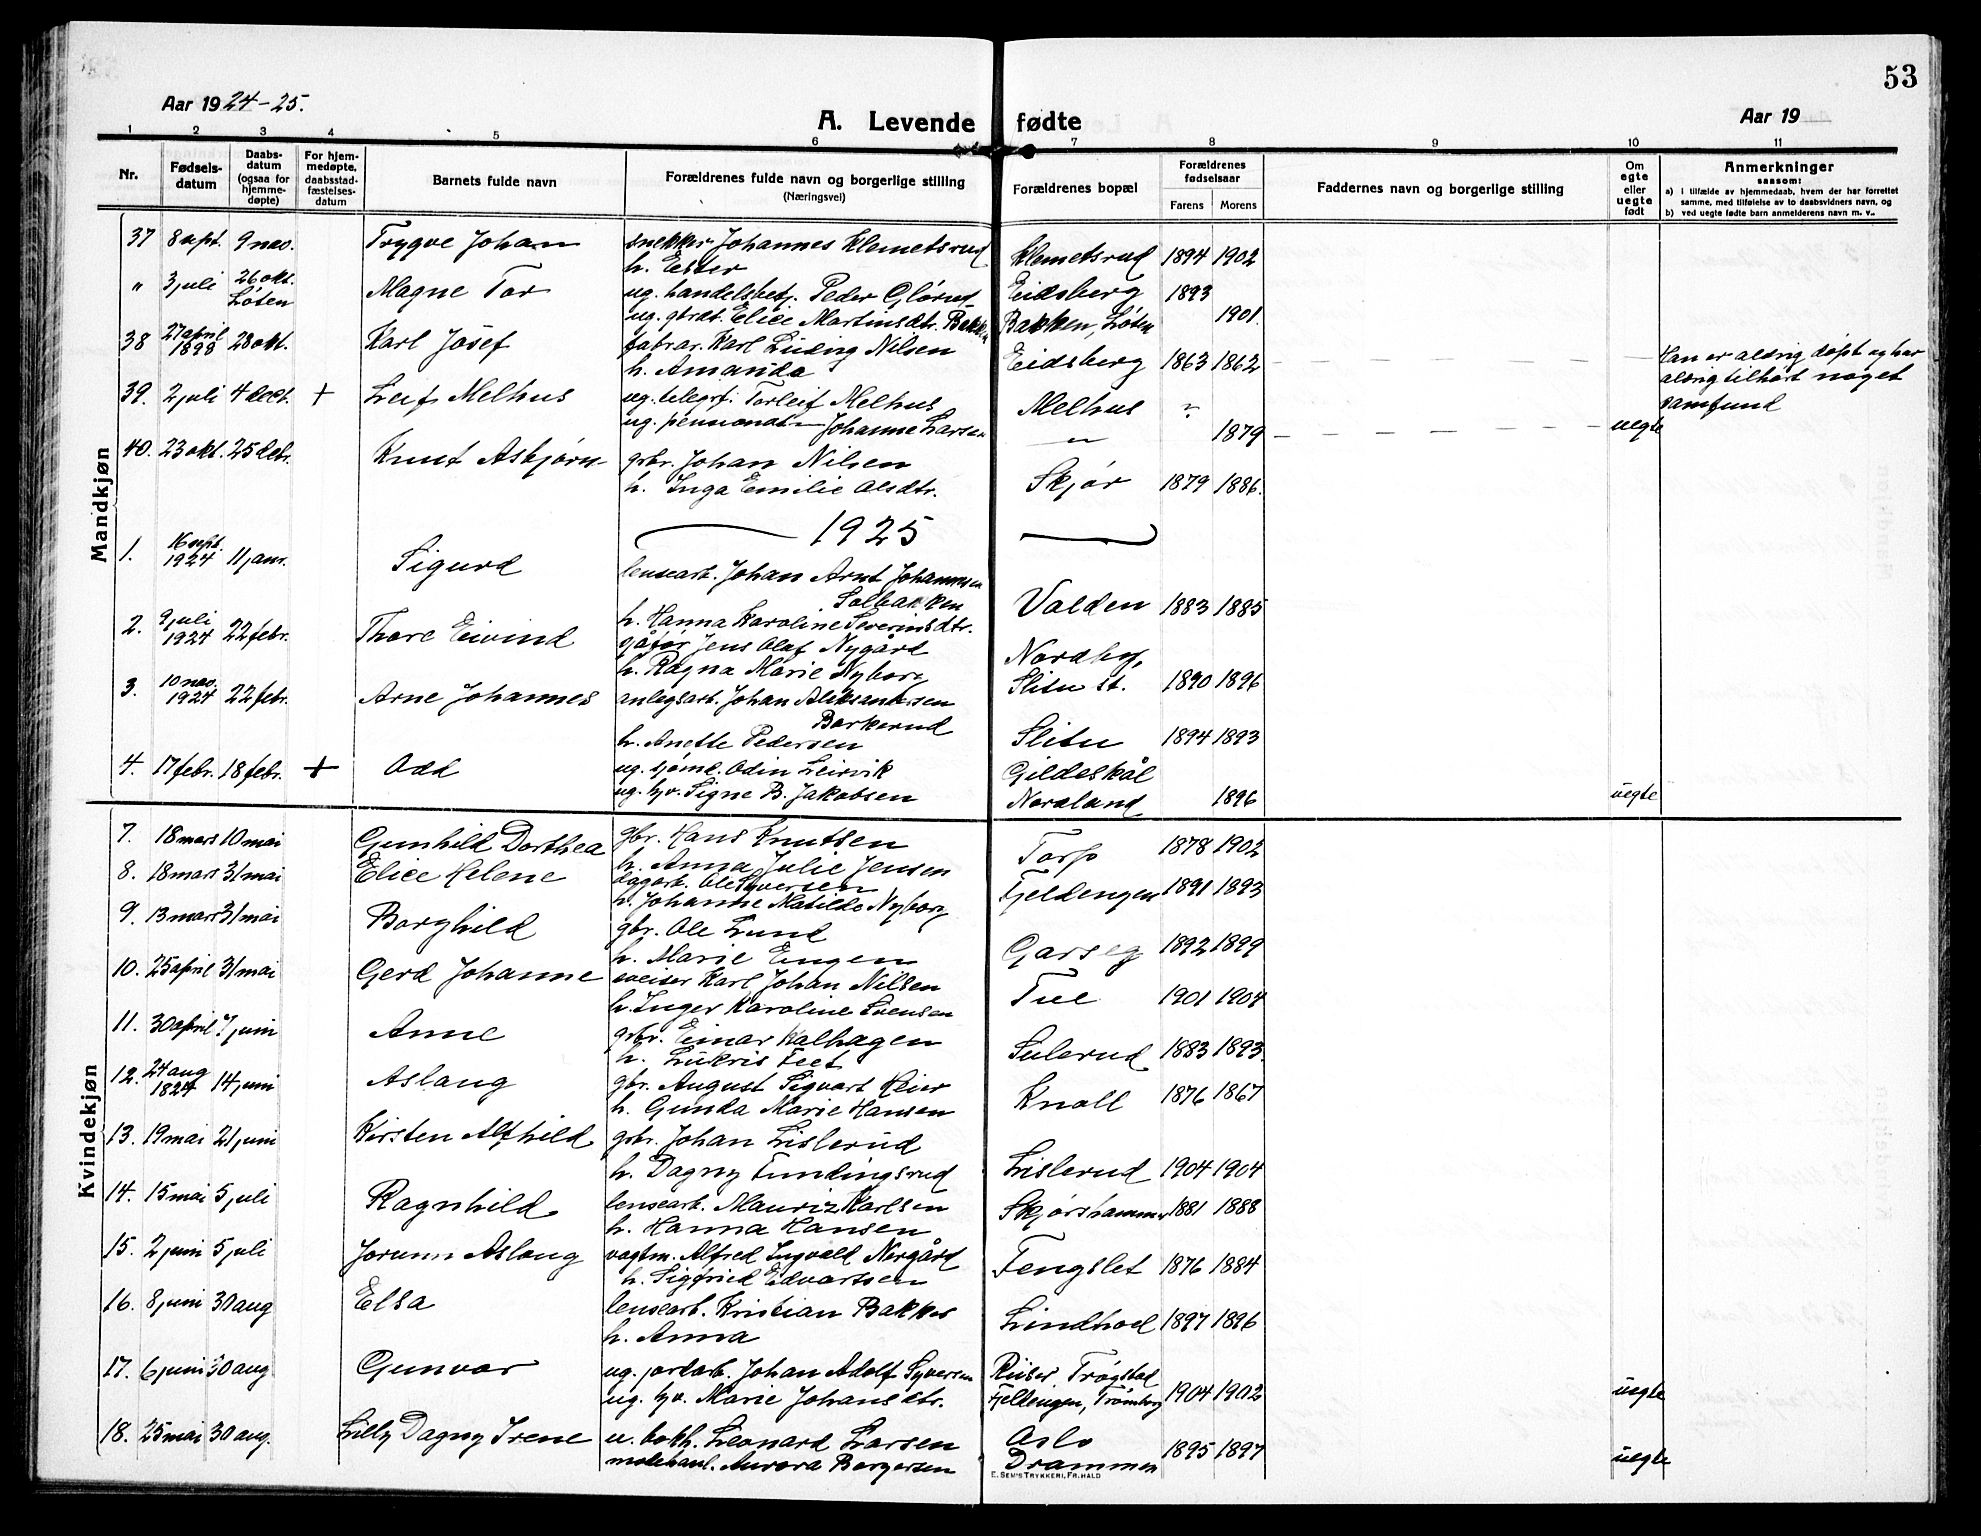 53
Aar 1924-25.
A. Levende fødte
Aar 19
1 2 3 4 5 6 7 8 9 10 11
Nr.
Fødselsdatum
Daabsdatum (ogsaa for hjemmedøpte)
For hjemmedøpte, daabsstadfæstelsesdatum
Barnets fulde navn
Forældrenes fulde navn og borgerlige stilling
(Næringsvei)
Forældrenes bopæl
Forældrenes fødselsaar
Farens Morens
Faddernes navn og borgerlige stilling
Om egte eller uegte født
Anmerkninger
saasom:
a) i tilfælde av hjemmedaab, hvem der har forrettet samme, med tilføielse av to daabsvidners navn, og
b) ved uegte fødte barn anmelderens navn m. v..
Mandkjøn
37 8 sept. 9 nov. Trygve Johan snekker Johannes Klemetsrud Klemetsrud 1894 1902
h. Ester
" 3 juli 26 okt. Løten Magne Tor ug. handelsbetj. Peder Glørud Eidsberg 1893
ug. gbrdt. Elice Martinsdtr. Bakken Bakken, Løten 1901
38 27 april 1898 28 okt. Karl Josef fabrar. Karl Ludvig Nilsen Eidsberg 1863 1862 Han er aldrig døpt og har
h. Amanda aldrig tilhørt noget
samfund
39. 2 juli 4 dect. + Leif Melhus ug. telegrf. Torleif Melhus Melhus "
ug. Johanne Larsen " 1879 uegte
40. 23 okt. 25 debr. Knut Asbjørn gbr. Johan Nilsen Skjør 1879 1886.
h. Inga Emilie Olsdtr.
1925
1. 16 sept. 1924 11 janr. Sigurd lensearb. Johan Arnt Johannesen Valden 1883 1885
Solbakken
h. Hanna Karoline Severinsdtr.
2. 9 juli 1924 22 febr. Thore Eivind sjåfør Jens Olaf Nygård Nordby,
h. Ragna Marie Nyborg Slitu st. 1890 1896
3. 10 nov. 1924 22 febr. Arne Johannes anlegsarb. Johan Aleksandersen
Barkerud Slitu 1894 1893
h. Anette Pedersen
4. 17 febr. 18 febr. + Odd ug. sjøm. Odin Leirvik Gildeskål
ug. tjv. Signe B. Jakobsen Nordland 1896 uegte
Kvindekjøn
7. 18 mars 10 mai Gunhild Dorthea gbr. Hans Knutsen Torp 1878 1902
h. Anna Julie Jensen
8. 18 mars 31 mai Elice Helene dagarb. Ole Syversen Fjeldengen 1891 1893
h. Johanne Matilde Nyborg
9. 13 mars 31 mai Borghild gbr. Ole Lund Garseg 1892 1899
h. Marie Engen
10. 25 april 31 mai Gerd Johanne sveiser Karl Johan Nilsen Tue 1901 1904
h. Inger Karoline Svensen
11. 30 april 7 juni Anne gbr. Einar Kalhagen Sulerud 1883 1893.
h. Lukris Teet
12. 24 aug 1824 14 juni Aslaug gbr. August Sigvart Heier Knoll 1876 1867
h. Gunda Marie Hansen
13. 19 mai 21 juni Kirsten Alfhild gbr. Johan Lislerud Lislerud 1904 1904
h. Dagny Fundingsrud
14. 15 mai 5 juli Ragnhild lensearb. Mauriz Karlsen Skjørshammer 1881 1888
h. Hanna Hansen
15. 2 juni 5 juli Jorunn Aslaug vagtm. Alfred Ingvald Nergård Tengslet 1876 1884
h. Sigfried Edvartsen
16. 8 juni 30 aug Elsa lensearb. Kristian Bakkes Lindhoel 1897 1896
h. Anna
17. 6 juni 30 aug Gunvor ug. jordarb. Johan Adolf Syversen Ruser Trøgstad
ug. tjv. Marie Johansdtr. Fjeldengen, Trømborg 1904 1902 uegte
18. 25 mai 30 aug. Lilly Dagny Irene u. bokh. Leonard Larsen Oslo 1895 1897
Aurora Borgersen Drammen uegte
E. SEM'S TRYKKERI, FR.HALD